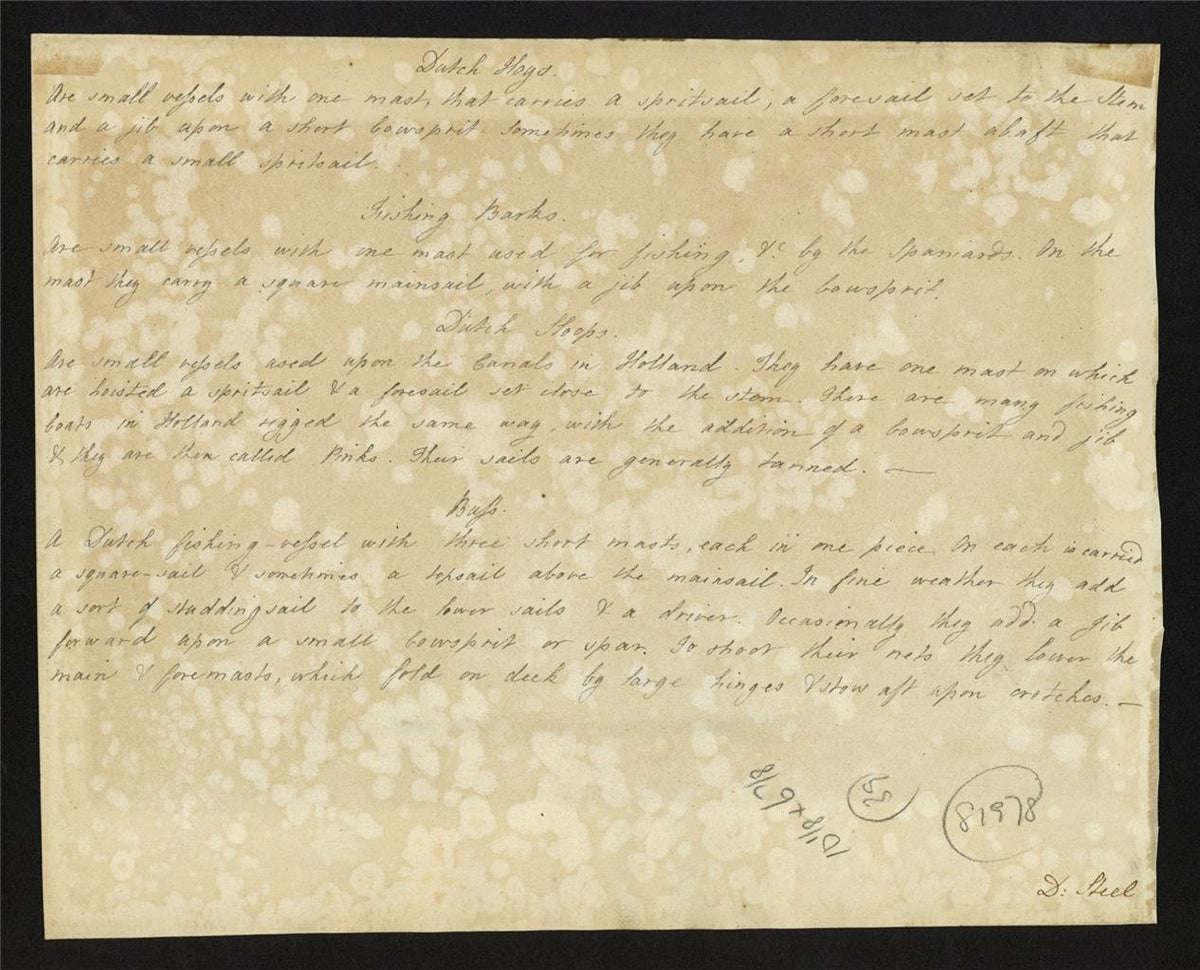 Dutch Hoys.
Are small veſsels with one mast, that carries a spritsail, a foresail set to the Stem
and a jib upon a short bowsprit. Sometimes they have a short mast abaft that
carries a small spritsail.
Fishing Barks.
Are small veſsels with one mast used for fishing, &c by the Spaniards. On the
mast they carry a square mainsail, with a jib upon the bowsprit.
Dutch Sloops.
Are small veſsels used upon the Canals in Holland. They have one mast on which
are hoisted a spritsail & a foresail set close to the stem. There are many fishing
boats in Holland rigged the same way, with the addition of a bowsprit and jib
& they are then called Pinks. Their sails are generally tanned. —
Buſs.
A Dutch fishing-veſsel with three short masts, each in one piece. On each is carried
a square-sail & sometimes a topsail above the mainsail. In fine weather they add
a sort of studdingsail to the lower sails & a driver. Occasionally they add a jib
forward upon a small bowsprit or spar. To shoot their nets they lower the
main & foremasts, which fold on deck by large hinges & stow aft upon crotches. —
81978
D: Steel